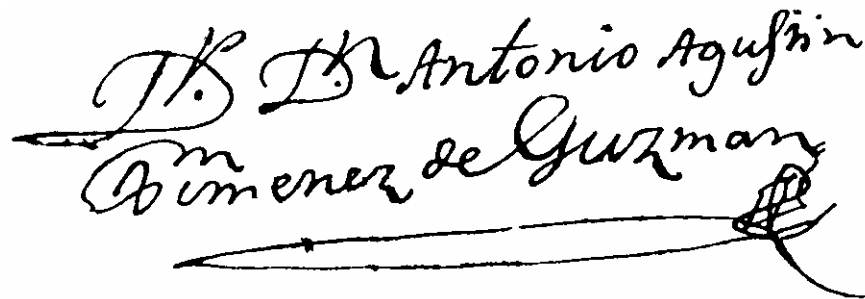 Dr. Dn Antonio Agustin
Ximenez de Guzman